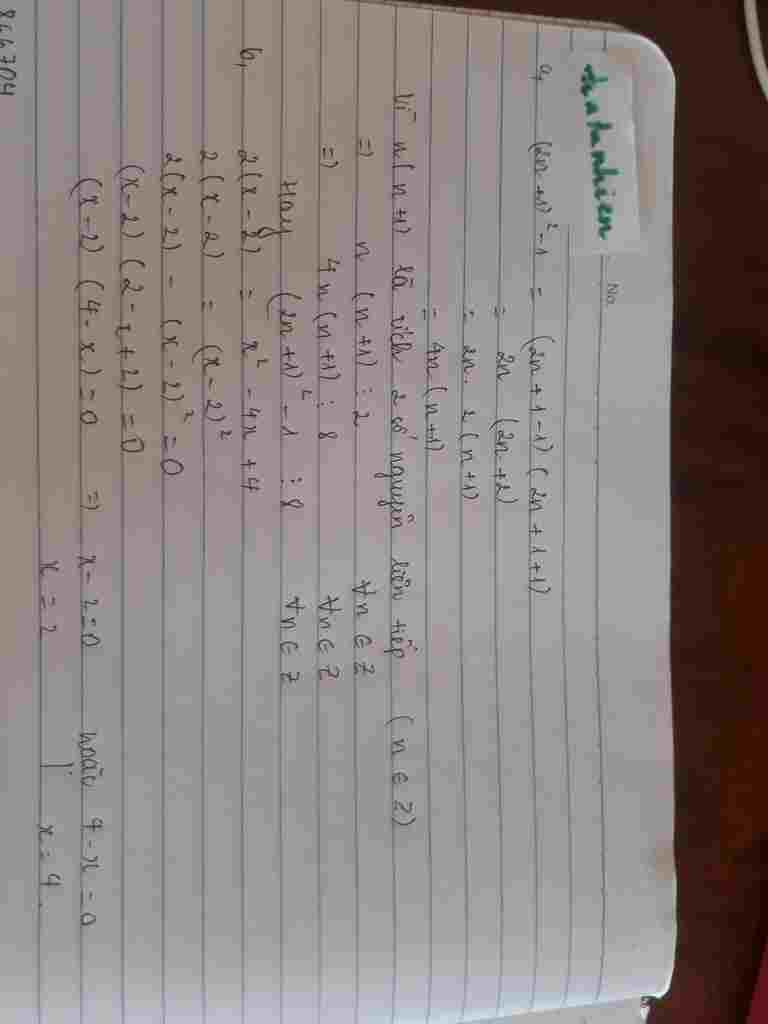 thatnhien
No.
a, (2n+1)² - 1 = (2n+1-1)(2n+1+1)
= 2n (2n+2)
= 2n. 2(n+1)
= 4n(n+1)
Vì n(n+1) là tích 2 số nguyên liên tiếp (n ∈ Z)
=) n(n+1) ⋮ 2 ∀n ∈ Z
=) 4n(n+1) ⋮ 8 ∀n ∈ Z
Hay (2n+1)² - 1 ⋮ 8 ∀n ∈ Z
b, 2(x-2) = x² - 4x + 4
2(x-2) = (x-2)²
2(x-2) - (x-2)² = 0
(x-2)(2-x+2) = 0
(x-2)(4-x) = 0 =) x-2=0 hoặc 4-x=0
x = 2 | x = 4.